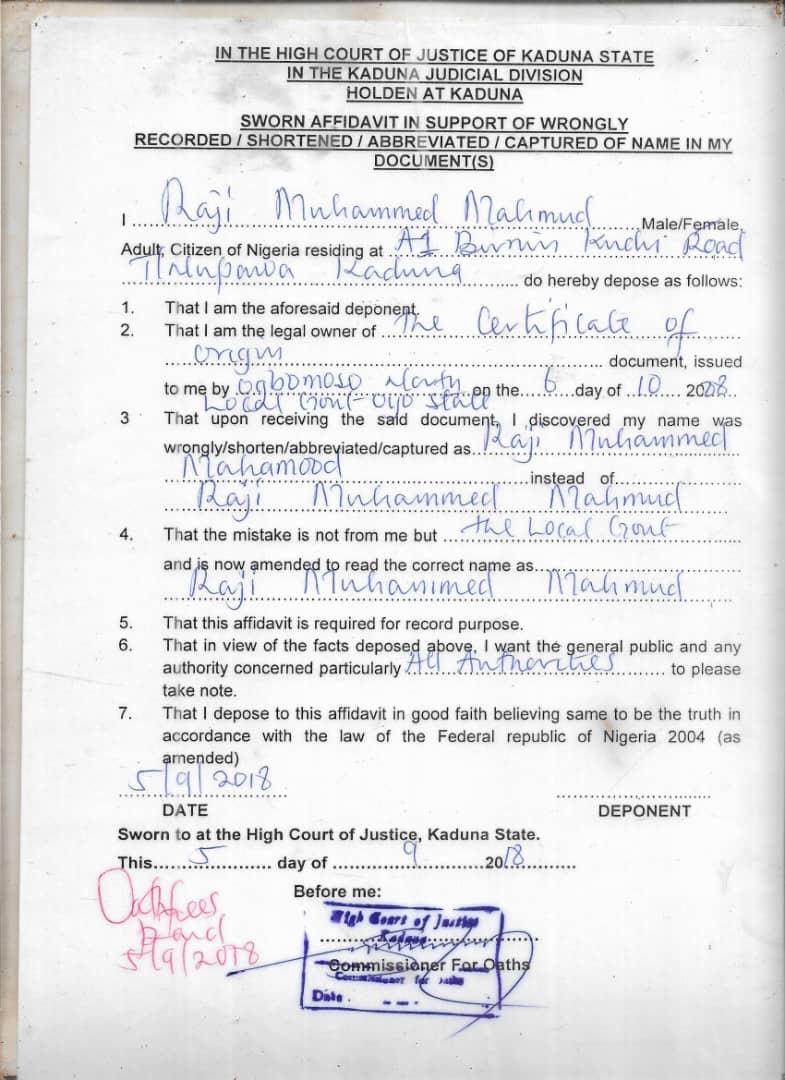 IN THE HIGH COURT OF JUSTICE OF KADUNA STATE
IN THE KADUNA JUDICIAL DIVISION
HOLDEN AT KADUNA
SWORN AFFIDAVIT IN SUPPORT OF WRONGLY
RECORDED / SHORTENED / ABBREVIATED / CAPTURED OF NAME IN MY
DOCUMENT(S)
I Raji Muhammed Mahmud Male/Female,
Adult, Citizen of Nigeria residing at A1 Birnin Kudu Road
Kaduna do hereby depose as follows:
1. That I am the aforesaid deponent.
2. That I am the legal owner of the Certificate of
origin document, issued
to me by Ogbomoso North on the 6 day of 10 2008.
Local Govt Oyo State
3 That upon receiving the said document, I discovered my name was
wrongly/shorten/abbreviated/captured as Raji Muhammed
Mahamood instead of
Raji Muhammed Mahmud
4. That the mistake is not from me but the Local Govt
and is now amended to read the correct name as
Raji Muhammed Mahmud
5. That this affidavit is required for record purpose.
6. That in view of the facts deposed above, I want the general public and any
authority concerned particularly All Authorities to please
take note.
7. That I depose to this affidavit in good faith believing same to be the truth in
accordance with the law of the Federal republic of Nigeria 2004 (as
amended)
5/9/2018
DATE DEPONENT
Sworn to at the High Court of Justice, Kaduna State.
This 5 day of 9 2018
Before me:
Oath fees
Paid
5/9/2018
High Court of Justice
Kaduna
Commissioner For Oaths
Commissioner for oaths
Date